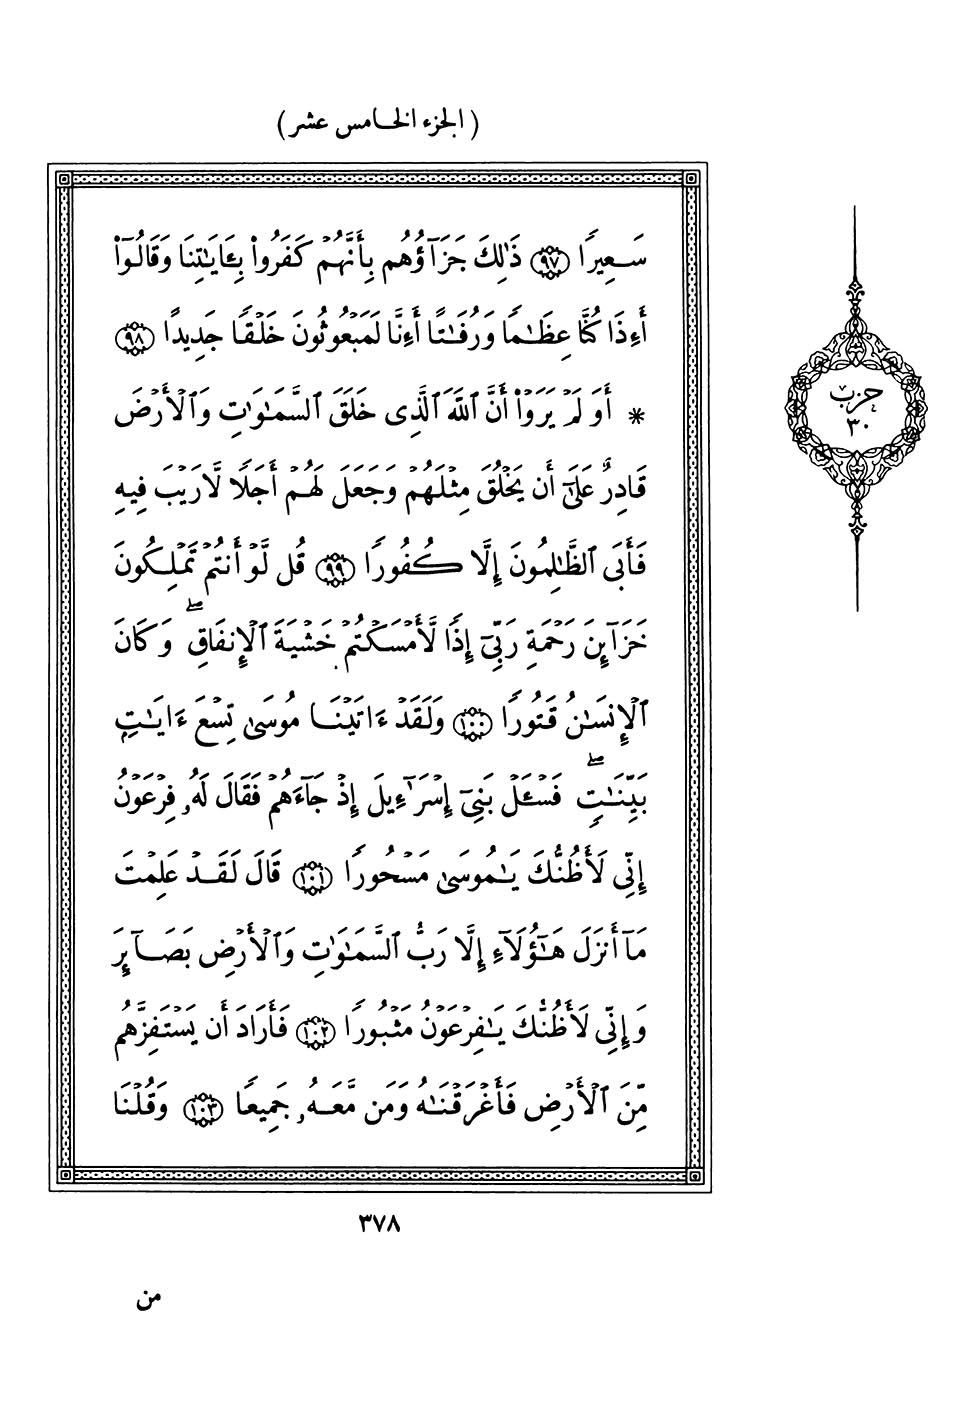 ( الجزء الخامس عشر )
سَعِيرًا ﴿٩٧﴾ ذَٰلِكَ جَزَآؤُهُم بِأَنَّهُمْ كَفَرُوا۟ بِـَٔايَـٰتِنَا وَقَالُوٓا۟
أَءِذَا كُنَّا عِظَـٰمًا وَرُفَـٰتًا أَءِنَّا لَمَبْعُوثُونَ خَلْقًا جَدِيدًا ﴿٩٨﴾
* أَوَلَمْ يَرَوْا۟ أَنَّ ٱللَّهَ ٱلَّذِى خَلَقَ ٱلسَّمَـٰوَٰتِ وَٱلْأَرْضَ
قَادِرٌ عَلَىٰٓ أَن يَخْلُقَ مِثْلَهُمْ وَجَعَلَ لَهُمْ أَجَلًا لَّا رَيْبَ فِيهِ
فَأَبَى ٱلظَّـٰلِمُونَ إِلَّا كُفُورًا ﴿٩٩﴾ قُل لَّوْ أَنتُمْ تَمْلِكُونَ
خَزَآئِنَ رَحْمَةِ رَبِّىٓ إِذًا لَّأَمْسَكْتُمْ خَشْيَةَ ٱلْإِنفَاقِ ۖ وَكَانَ
ٱلْإِنسَـٰنُ قَتُورًا ﴿١٠٠﴾ وَلَقَدْ ءَاتَيْنَا مُوسَىٰ تِسْعَ ءَايَـٰتٍۭ
بَيِّنَـٰتٍ ۖ فَسْـَٔلْ بَنِىٓ إِسْرَٰٓءِيلَ إِذْ جَآءَهُمْ فَقَالَ لَهُۥ فِرْعَوْنُ
إِنِّى لَأَظُنُّكَ يَـٰمُوسَىٰ مَسْحُورًا ﴿١٠١﴾ قَالَ لَقَدْ عَلِمْتَ
مَآ أَنزَلَ هَـٰٓؤُلَآءِ إِلَّا رَبُّ ٱلسَّمَـٰوَٰتِ وَٱلْأَرْضِ بَصَآئِرَ
وَإِنِّى لَأَظُنُّكَ يَـٰفِرْعَوْنُ مَثْبُورًا ﴿١٠٢﴾ فَأَرَادَ أَن يَسْتَفِزَّهُم
مِّنَ ٱلْأَرْضِ فَأَغْرَقْنَـٰهُ وَمَن مَّعَهُۥ جَمِيعًا ﴿١٠٣﴾ وَقُلْنَا
حزب
٣٠
٣٧٨
من